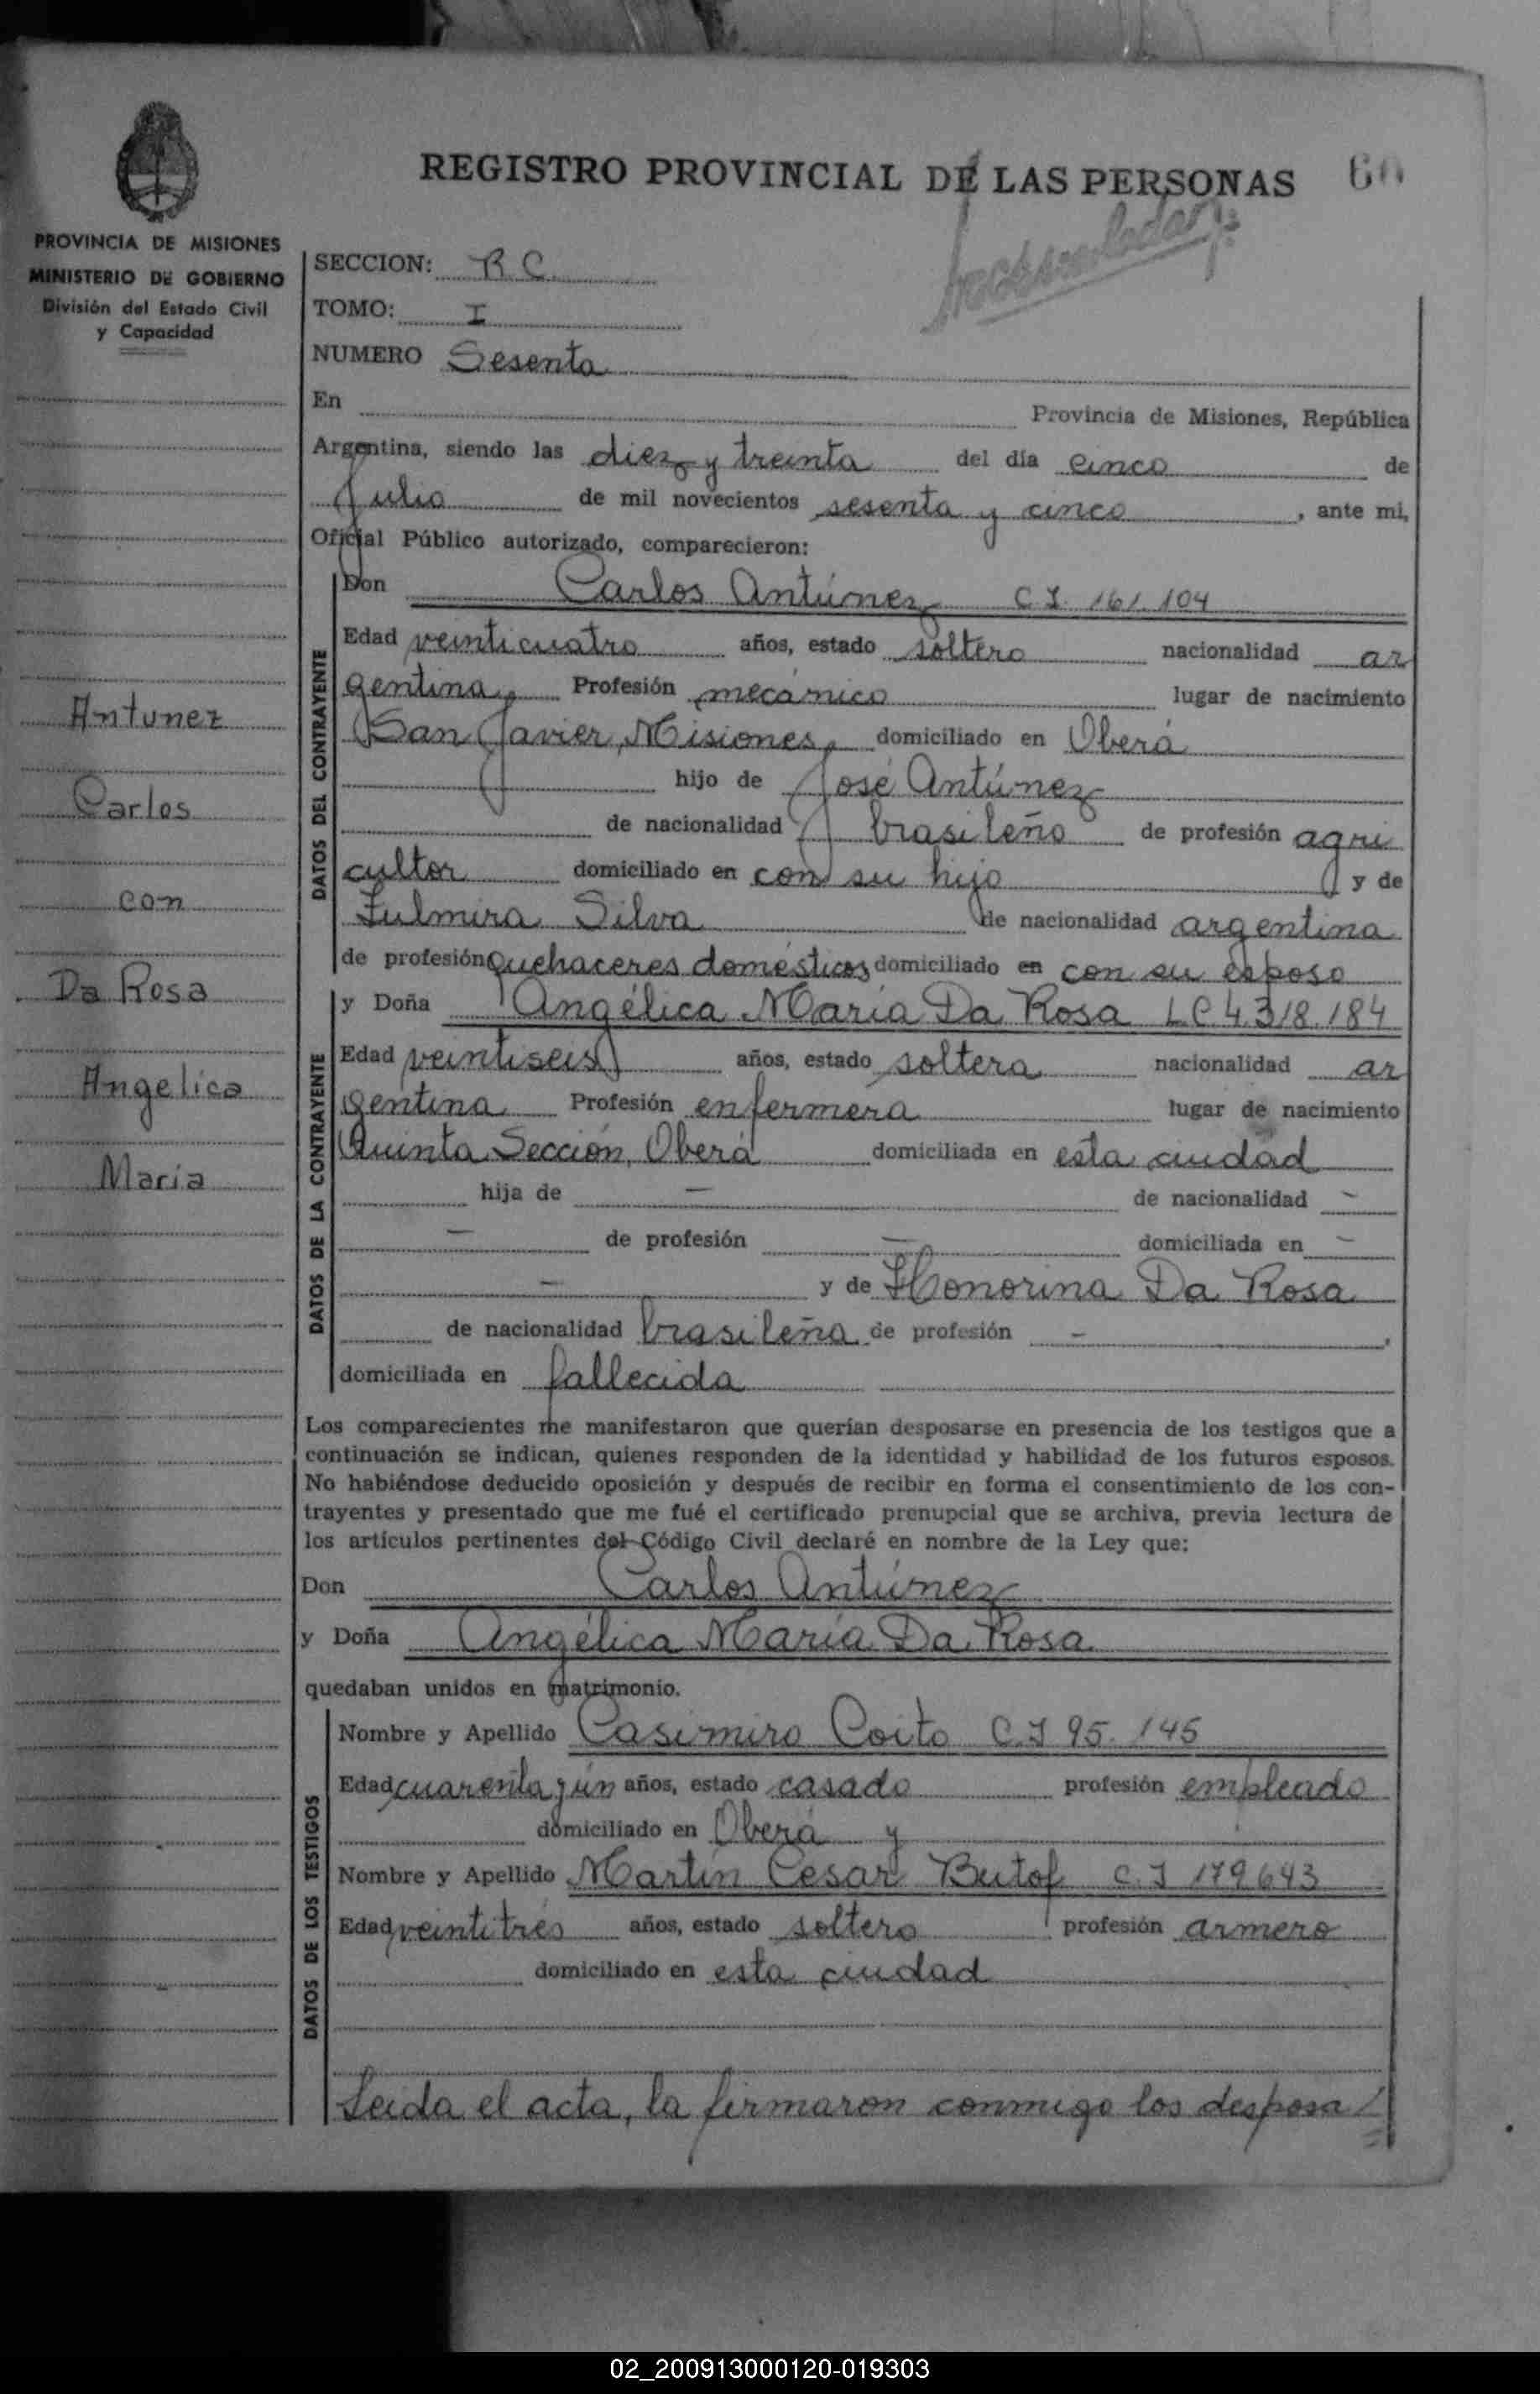 REGISTRO PROVINCIAL DE LAS PERSONAS 60
PROVINCIA DE MISIONES
MINISTERIO DE GOBIERNO
División del Estado Civil
y Capacidad
Antunez
Carlos
con
Da Rosa
Angelica
Maria
SECCION: R C.
TOMO: I
NUMERO Sesenta
En Provincia de Misiones, República
Argentina, siendo las diez y treinta del día cinco de
Julio de mil novecientos sesenta y cinco, ante mi,
Oficial Público autorizado, comparecieron:
DATOS DEL CONTRAYENTE
Don Carlos Antúnez C.I. 161.104
Edad veinticuatro años, estado soltero nacionalidad ar
gentina, Profesión mecánico lugar de nacimiento
San Javier, Misiones, domiciliado en Oberá
hijo de José Antúnez
de nacionalidad brasileño de profesión agri
cultor domiciliado en con su hijo y de
Zulmira Silva de nacionalidad argentina
de profesión quehaceres domésticos domiciliado en con su esposo
DATOS DE LA CONTRAYENTE
y Doña Angélica María Da Rosa LC 4.318.184
Edad veintiseis años, estado soltera nacionalidad ar
gentina Profesión enfermera lugar de nacimiento
Quinta Sección, Oberá domiciliada en esta ciudad
hija de — de nacionalidad -
— de profesión — domiciliada en —
— y de Honorina Da Rosa
de nacionalidad brasileña de profesión - ,
domiciliada en fallecida
Los comparecientes me manifestaron que querían desposarse en presencia de los testigos que a
continuación se indican, quienes responden de la identidad y habilidad de los futuros esposos.
No habiéndose deducido oposición y después de recibir en forma el consentimiento de los con-
trayentes y presentado que me fué el certificado prenupcial que se archiva, previa lectura de
los artículos pertinentes del Código Civil declaré en nombre de la Ley que:
Don Carlos Antúnez
y Doña Angélica María Da Rosa
quedaban unidos en matrimonio.
DATOS DE LOS TESTIGOS
Nombre y Apellido Casimiro Coito C.I 95.145
Edad cuarenta y un años, estado casado profesión empleado
domiciliado en Oberá y
Nombre y Apellido Martín Cesar Butof C.I 179.643
Edad veintitrés años, estado soltero profesión armero
domiciliado en esta ciudad
Leida el acta, la firmaron conmigo los desposa/
02_200913000120-019303